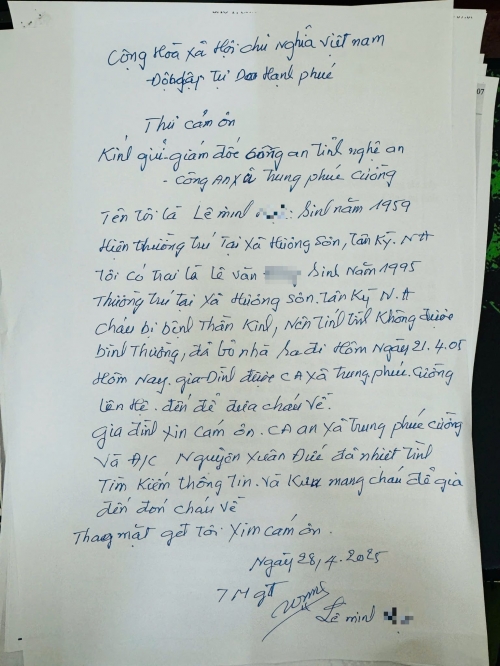 Cộng Hoà Xã Hội chủ Nghĩa Việt nam
Độc lập Tự Do Hạnh phúc
Thư cảm ơn
Kính gửi - giám đốc công an tỉnh nghệ an
- công an xã Trung phúc cường
Tên tôi là Lê minh Sinh năm 1959
Hiện thường trú Tại xã Hương Sơn, Tân Kỳ. N A
Tôi có trai là Lê văn Sinh Năm 1995
Thường trú tại xã Hương Sơn. Tân Kỳ N. A
Cháu bị bệnh Thần Kinh, Nên Tinh thần Không được
bình Thường, đã bỏ nhà ra đi Hôm Ngày 21.4.05
Hôm Nay. gia đình được CA xã Trung phúc. Cường
liên Hệ. đến để đưa cháu Về.
gia đình xin cám ơn. CA an xã Trung phúc cường
Và Đ/C Nguyễn Xuân Điế đã nhiệt tình
Tìm Kiếm thông Tin. Và Kưu mang cháu để gia
đến đón cháu Về
Thay mặt gđ Tôi xim cám ơn.
Ngày 28, 4. 2025
T M gđ
Lê minh